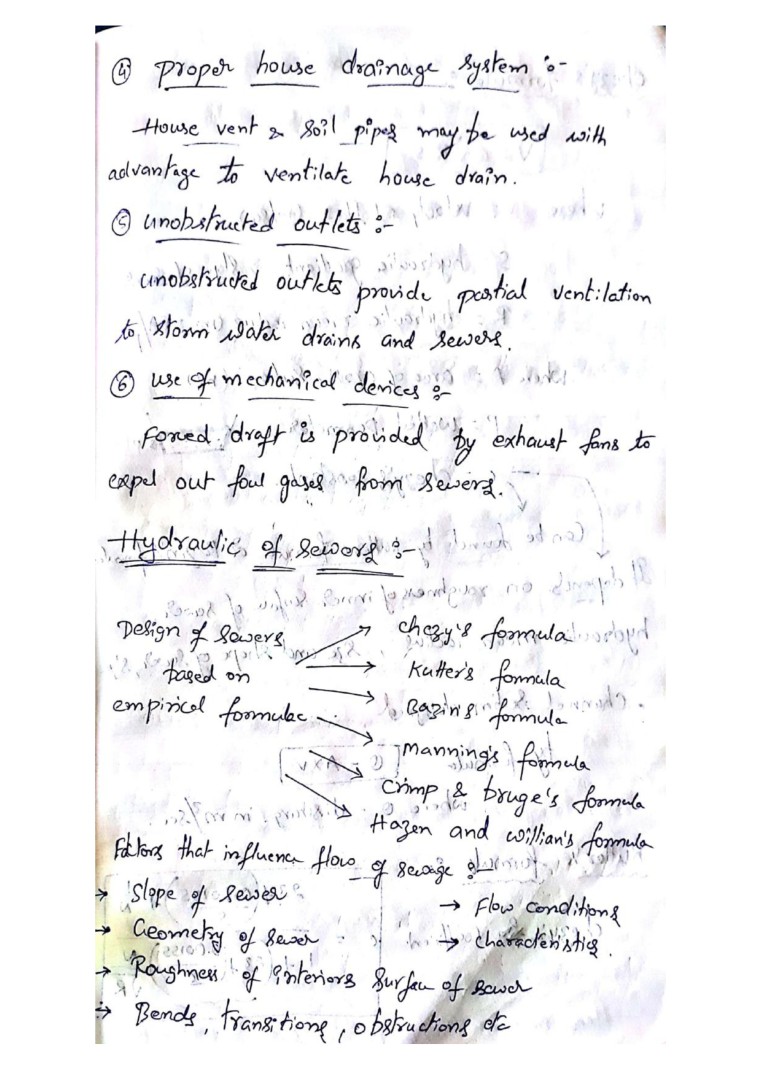 ④ Proper house drainage system :-
House vent & soil pipes may be used with
advantage to ventilate house drain.
⑤ unobstructed outlets :-
unobstructed outlets provide partial ventilation
to storm water drains and sewers.
⑥ use of mechanical devices :-
Forced draft is provided by exhaust fans to
expel out foul gases from sewers.
Hydraulic of sewers :-
Design of sewers
based on
empirical formulae
Chezy's formula
Kutter's formula
Bazin's formula
Manning's formula
Crimp & bruge's formula
Hazen and willian's formula
Factors that influence flow of sewage :-
→ Slope of sewer
→ Geometry of sewer
→ Roughness of interiors surface of sewer
→ Bends, transitions, obstructions etc
→ Flow conditions
→ characteristics.